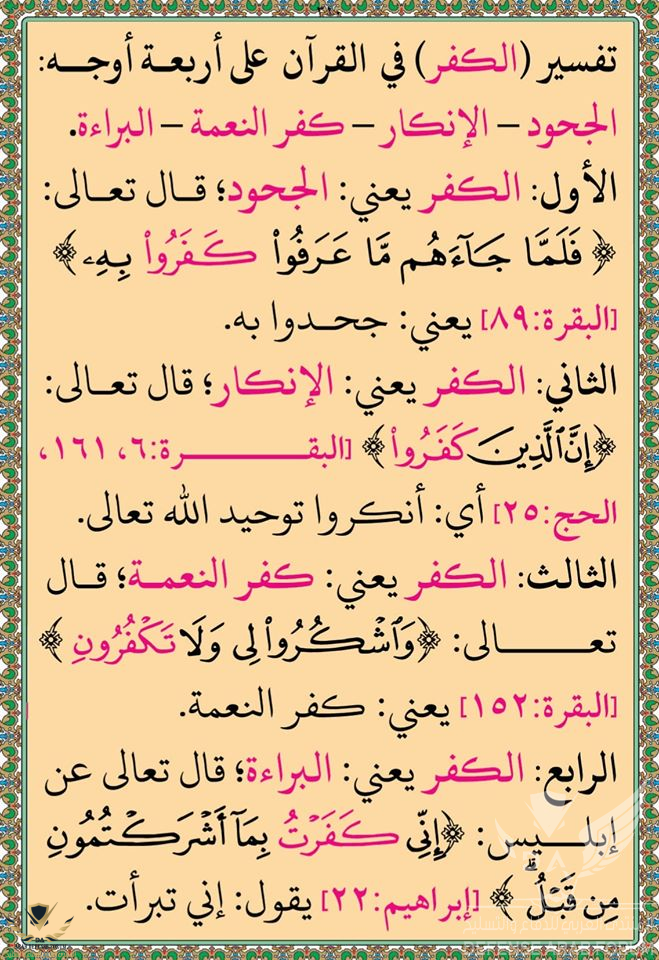 تفسير (الكفر) في القرآن على أربعة أوجه:
الجحود – الإنكار – كفر النعمة – البراءة.
الأول: الكفر يعني: الجحود؛ قال تعالى:
﴿ فَلَمَّا جَآءَهُم مَّا عَرَفُواْ كَفَرُواْ بِهِۦ ﴾
[البقرة:٨٩] يعني: جحدوا به.
الثاني: الكفر يعني: الإنكار؛ قال تعالى:
﴿إِنَّ ٱلَّذِينَ كَفَرُواْ ﴾ [البقرة:٦، ١٦١،
الحج:٢٥] أي: أنكروا توحيد الله تعالى.
الثالث: الكفر يعني: كفر النعمة؛ قال
تعالى: ﴿وَٱشْكُرُواْ لِى وَلَا تَكْفُرُونِ ﴾
[البقرة:١٥٢] يعني: كفر النعمة.
الرابع: الكفر يعني: البراءة؛ قال تعالى عن
إبليس: ﴿إِنِّى كَفَرْتُ بِمَآ أَشْرَكْتُمُونِ
مِن قَبْلُ ۗ ﴾ [إبراهيم:٢٢] يقول: إني تبرأت.